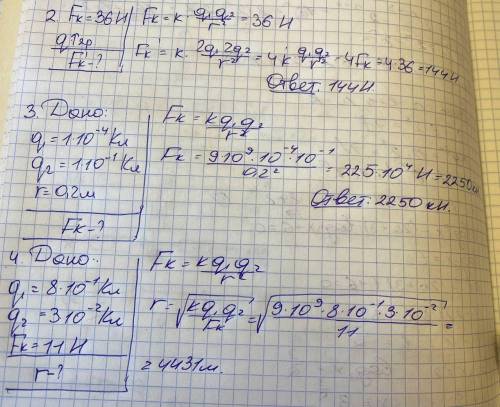 2. Fк = 36 Н | Fк = к · q₁q₂/r² = 36 Н
q ↑ 2р | Fк = к · 2q₁ 2q₂/r² = 4к q₁q₂/r² = 4Fк = 4·36 = 144Н
Fк - ?
Ответ: 144Н.
3. Дано:
q₁ = 1·10⁻⁴ Кл
q₂ = 1·10⁻¹ Кл
r = 0,2м
Fк - ?
Fк = кq₁q₂/r²
Fк = 9·10⁹·10⁻⁴·10⁻¹/0,2² = 225·10⁴ Н = 2250кН
Ответ: 2250 кН.
4. Дано:
q₁ = 8·10⁻¹ Кл
q₂ = 3·10⁻² Кл
Fк = 11 Н
r - ?
Fк = кq₁q₂/r²
r = √(кq₁q₂/Fк) = √(9·10⁹·8·10⁻¹·3·10⁻²/11) =
= 4431м.